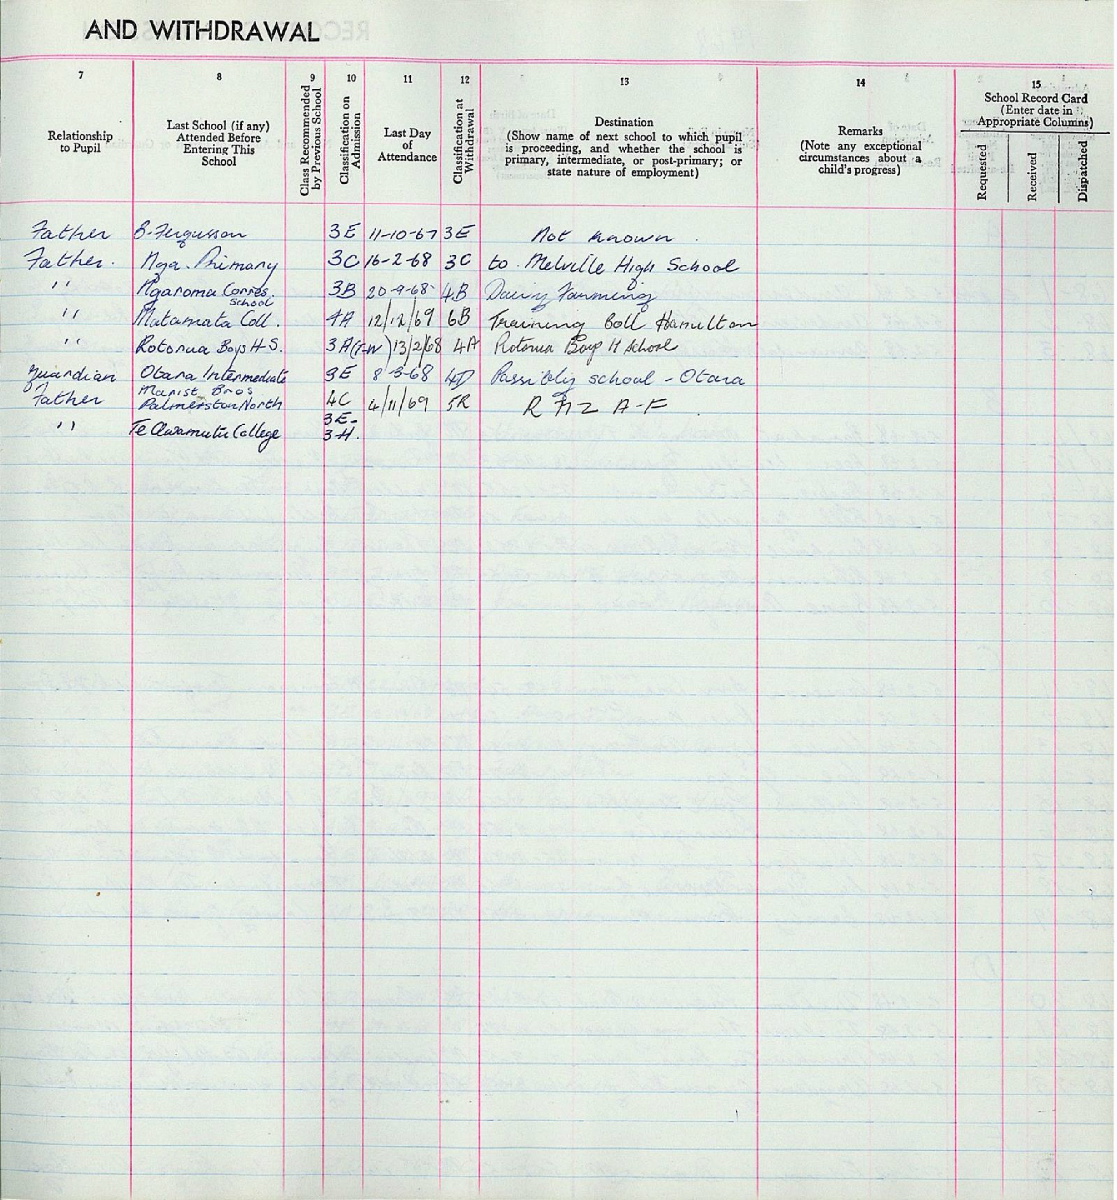 AND WITHDRAWAL
7 8 9 10 11 12 13 14 15
Relationship to Pupil
Last School (if any) Attended Before Entering This School
Class Recommended by Previous School
Classification on Admission
Last Day of Attendance
Classification at Withdrawal
Destination
(Show name of next school to which pupil is proceeding, and whether the school is primary, intermediate, or post-primary; or state nature of employment)
Remarks
(Note any exceptional circumstances about a child's progress)
School Record Card
(Enter date in Appropriate Columns)
Requested
Received
Dispatched
Father B. Fergusson 3E 11-10-67 3E Not known.
Father. Nga. Primary 3C 16-2-68 3C to Melville High School
" Ngaroma Corres. School 3B 20-9-68 4B Dairy Farming
" Matamata Coll. 4A 12/12/69 6B Training Coll Hamilton
" Rotorua Boys H.S. 3A 13/2/68 4A Rotorua Boys H School
Guardian Otara Intermediate 3E 8-3-68 4D Possibly school - Otara
Father Marist Bros Palmerston North 4C 4/11/69 5R R NZ A-F
" Te Awamutu College 3E- 3H.